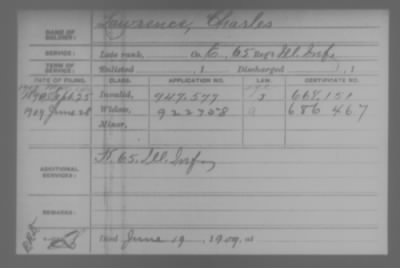 NAME OF SOLDIER: Lawrence, Charles
SERVICE: Late rank, Co. 65 Reg't Ill. Inf.
TERM OF SERVICE: Enlisted , 1 Discharged , 1
DATE OF FILING. CLASS. APPLICATION NO. LAW. CERTIFICATE NO.
1890 Sept 25 Invalid, 947.577 J 664.151
1909 June 28 Widow, 922758 686 467
Minor,
ADDITIONAL SERVICES: 65. Ill. Inf.
REMARKS:
Died June 19, 1909, at